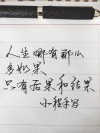 人生哪有那么
多如果
只有后果和结果